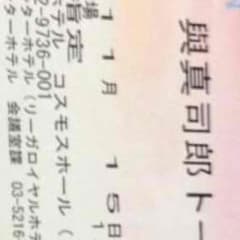 與真司郎トー
11月 15日
場
室 コスモスホール（
テル
2-9736-001
ターホテル（リーガロイヤルホテ
ターホテル 会議室課
03-5216